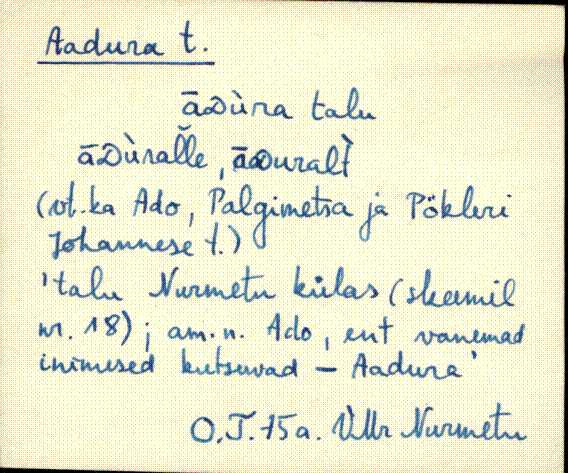 Aadura t.
āᴅùra talu
āᴅùraľľe, āᴅuralt̀
(vt. ka Ado, Palgimetsa ja Pökleri
Johannese t.)
'talu Nurmetu külas (skeemil
nr. 18); am.n. Ado, ent vanemad
inimesed kutsuvad – Aadura'
O.T. 75a. VMr Nurmetu